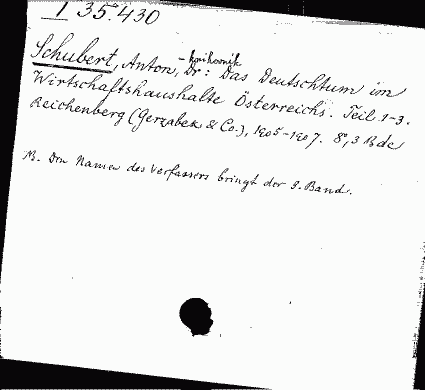 I 35.430
Schubert, Anton, - knihovník Dr: Das Deutschtum im
Wirtschaftshaushalte Österreichs. Teil 1-3.
Reichenberg (Gerzabek & Co.), 1905-1907. 8°, 3 Bde
NB. Den Namen des Verfassers bringt der 3. Band.